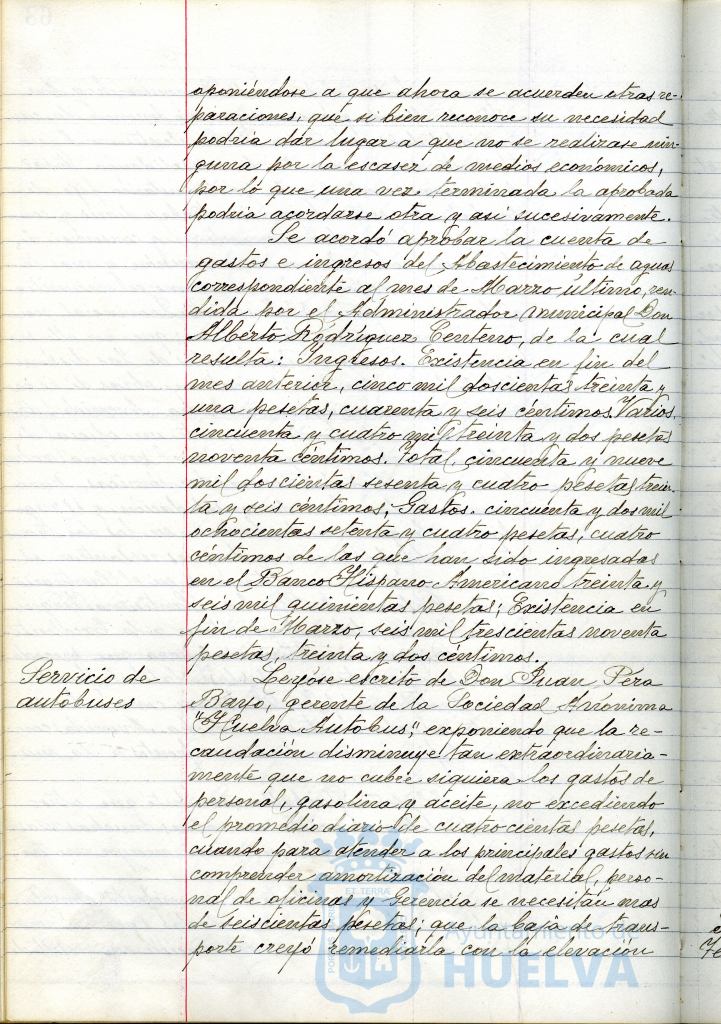 oponiéndose a que ahora se acuerden otras re-
paraciones, que si bien reconoce su necesidad
podria dar lugar a que no se realizase nin-
guna por la escasez de medios económicos,
por lo que una vez terminada la aprobada
podria acordarse otra y asi sucesivamente.
Se acordó aprobar la cuenta de
gastos e ingresos del Abastecimiento de aguas
correspondiente al mes de Marzo último, ren-
dida por el Administrador municipal Don
Alberto Rodríguez Centeno, de la cual
resulta: Ingresos. Existencia en fin del
mes anterior, cinco mil doscientas treinta y
una pesetas, cuarenta y seis céntimos. Varios,
cincuenta y cuatro mil treinta y dos pesetas
noventa céntimos. Total, cincuenta y nueve
mil doscientas sesenta y cuatro pesetas trein-
ta y seis céntimos; Gastos. cincuenta y dos mil
ochocientas setenta y cuatro pesetas, cuatro
céntimos de las que han sido ingresadas
en el Banco Hispano-Americano treinta y
seis mil quinientas pesetas; Existencia en
fin de Marzo, seis mil trescientas noventa
pesetas, treinta y dos céntimos.
Servicio de
autobuses
Leyose escrito de Don Juan Pera
Bayo, gerente de la Sociedad Anónima
"Huelva Autobus", exponiendo que la re-
caudación disminuye tan extraordinaria-
mente que no cubre siquiera los gastos de
personal, gasolina y aceite, no excediendo
el promedio diario de cuatrocientas pesetas,
cuando para atender a los principales gastos sin
comprender amortización del material, perso-
nal de oficinas y Gerencia se necesitan mas
de seiscientas pesetas; que la baja de trans-
porte creyó remediarla con la elevación
Ayuntamiento de
HUELVA